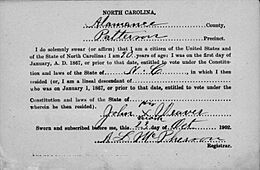 NORTH CAROLINA,
Alamance County,
Patterson Precinct.
I do solemnly swear (or affirm) that I am a citizen of the United States and
of the State of North Carolina; I am 70 years of age; I was on the first day of
January, A. D. 1867, or prior to that date, entitled to vote under the constitution
and laws of the State of N. C , in which I then
resided (or, I am a lineal descendant of
who was on January 1, 1867, or prior to that date, entitled to vote under the
Constitution and laws of the State of
wherein he then resided).
his
John X Weaver
mark
Sworn and subscribed before me, this 22 day of Oct 1902.
Registrar.